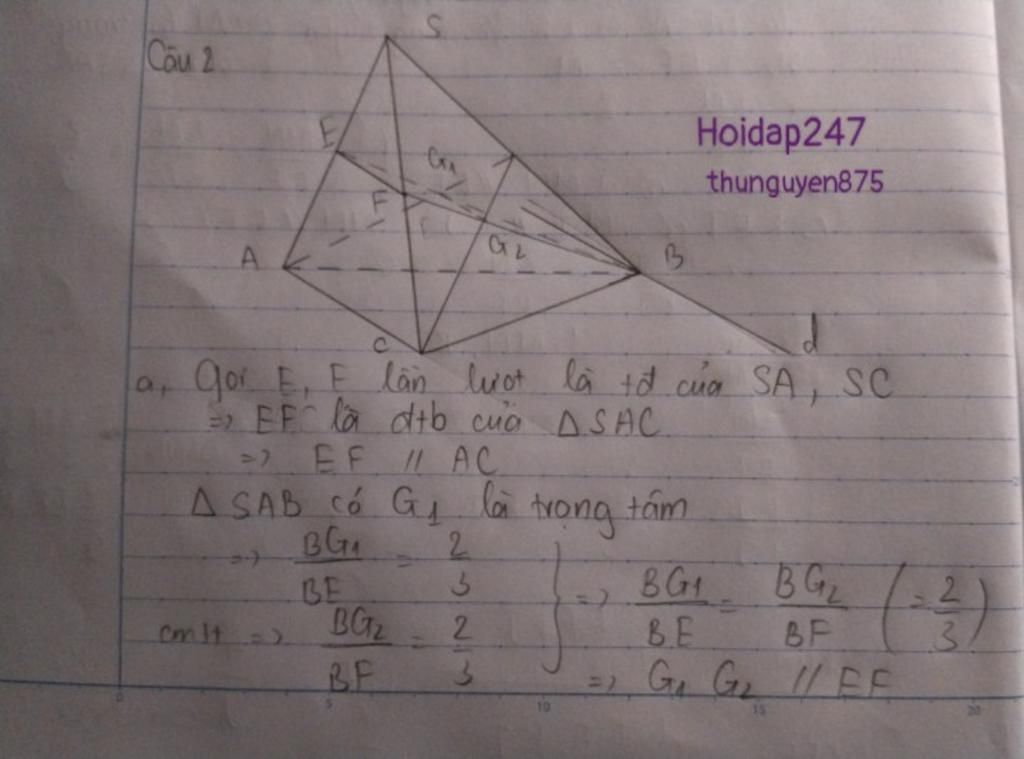 Câu 2
S
Hoidap247
thunguyen875
E
G1
F
G2
A
B
C
d
a, Gọi E, F lần lượt là tđ của SA, SC
=> EF là đtb của Δ SAC
=> EF // AC
Δ SAB có G1 là trọng tâm
=> BG1/BE = 2/3
cmtt => BG2/BF = 2/3
} => BG1/BE = BG2/BF (= 2/3)
=> G1 G2 // EF
0 5 10 15 20